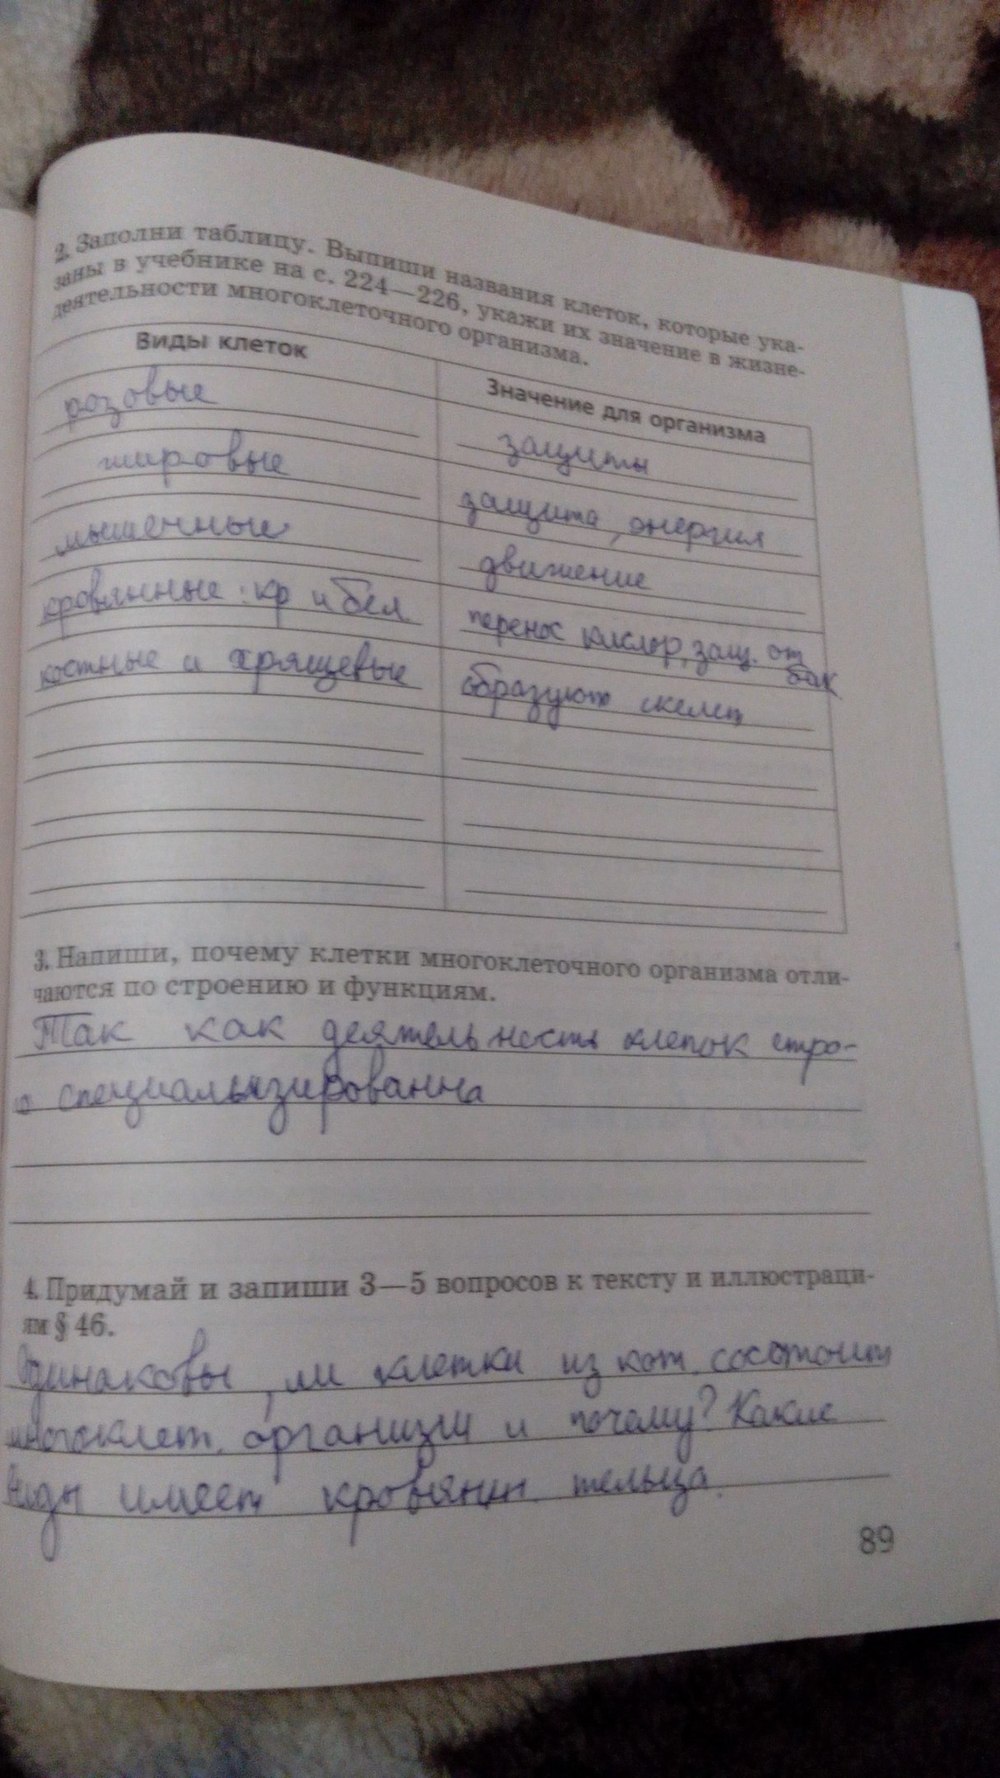 2. Заполни таблицу. Выпиши названия клеток, которые ука-
заны в учебнике на с. 224—226, укажи их значение в жизне-
деятельности многоклеточного организма.
Виды клеток
Значение для организма
розовые
защиты
жировые
защита, энергия
мышечные
движение
кровянные: кр и бел.
перенос кислор, защ. от
бак
костные и хрящевые
образуют скелет
3. Напиши, почему клетки многоклеточного организма отли-
чаются по строению и функциям.
Так как деятельность клеток стро-
го специальизированна
4. Придумай и запиши 3—5 вопросов к тексту и иллюстраци-
ям § 46.
Одинаковы, ли клетки из кот. состоит
многоклет. организм и почему? Какие
виды имеет кровянн. тельца.
89